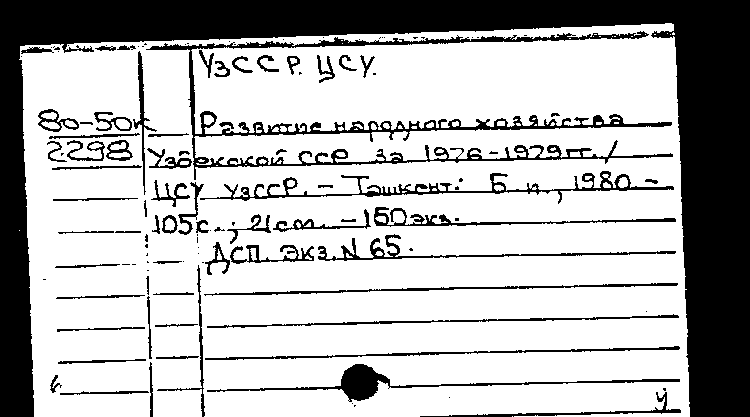 УзССР. ЦСУ.
80-50к Развитие народного хозяйства
2298 Узбекской ССР за 1976-1979гг. /
ЦСУ УзССР. – Ташкент: Б. и., 1980. –
105с.; 21см. – 150экз.
ДСП. Экз. N 65.
6.
У